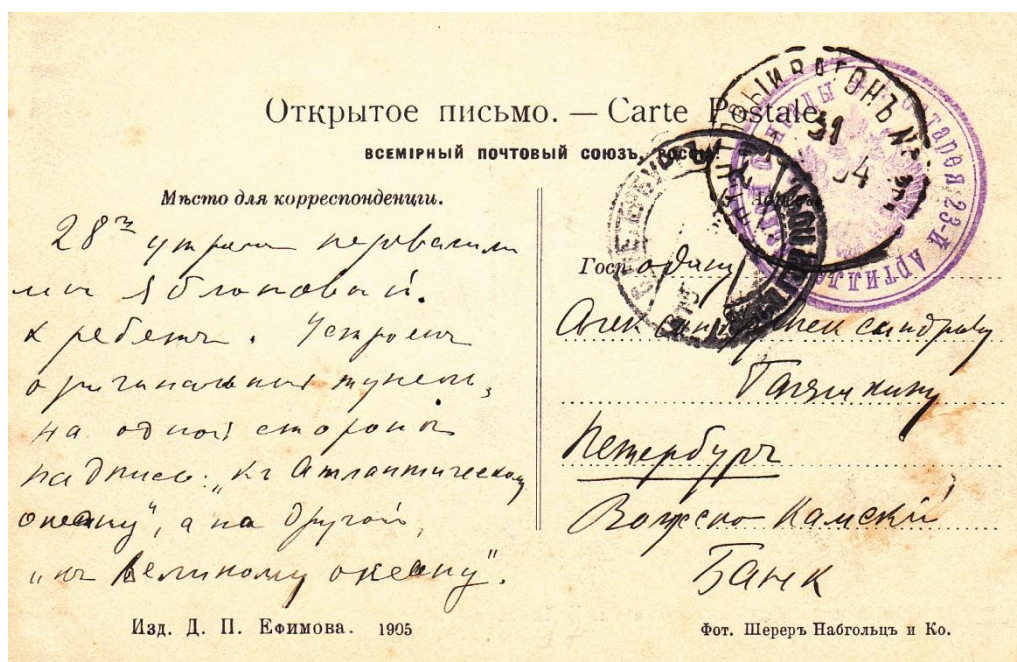 Открытое письмо. — Carte Postale.
ВСЕМІРНЫЙ ПОЧТОВЫЙ СОЮЗЪ, РОССІЯ.
Мѣсто для корреспонденціи.
28го утромъ перевалили
мы Яблоновый
хребетъ. Устроенъ
оригинальный тунель,
на одной сторонѣ
надпись: „Къ Атлантическому
океану", а на другой,
„къ Великому океану".
Господину
Александру Александровичу
Петербургъ
Волжско Камскій
Банк
ПОЧТОВЫЙ ВАГОНЪ №
31
04
БАТАРЕЯ 23-Й АРТИЛЛЕ
С.ПЕТЕРБУРГЪ
Изд. Д. П. Ефимова. 1905
Фот. Шереръ Набгольцъ и Ко.